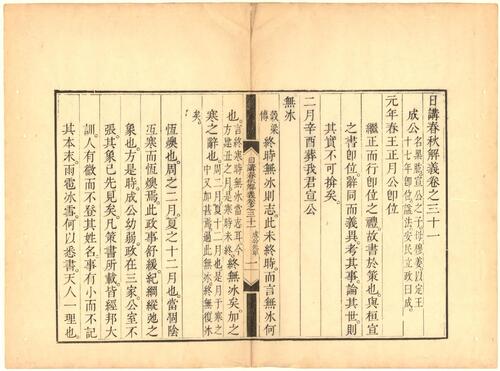 日講春秋解義卷之三十一
成公名黑肱宣公之子母穆姜以定王
十七年即位諡法安民立政曰成。
元年春王正月公即位
繼正而行即位之禮。故書於策也。與桓宣
之書即位。辭同而義異。考其事。論其世。則
其實不可揜矣。
二月辛酉葬我君宣公
無冰
穀梁傳終時無冰則志。此未終時。而言無冰何
日講春秋解義卷三十一 成公元年 一
也。言終寒時無冰當志耳。今
方建丑之月是寒時未終。終無冰矣。加之
寒之辭也。周二月夏十二月也是月于寒之
中又加甚焉過此無冰終無復冰
矣。
恆燠也。周之二月。夏之十二月也。當固陰
沍寒而恆燠焉。此政事舒緩紀綱縱弛之
象也。方是時。成公幼弱政在三家。公室不
張。其象已先見矣。凡策書所載。皆經邦大
訓。人有微而不登其姓名。事有小而不記
其本末。雨雹冰雪。何以悉書。天人一理也。